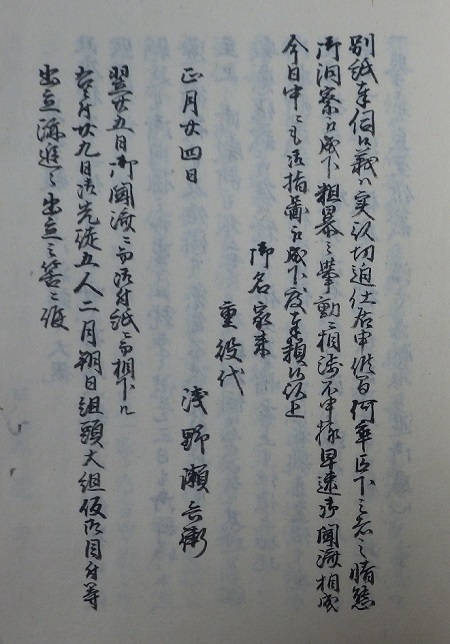 別紙奉伺候義ハ実以切迫仕居申候間何卒臣下之者之情態
御洞察被成下粗暴之挙動ニ相渉不申様早速御聞済相成
今日中ニも御指図被成下度奉願候以上
御名家来
重役代
浅野瀬兵衛
正月廿四日
翌廿五日御聞済ニ而御付紙ニ而相下ル
右ニ付廿九日御先徒五人二月朔日組頭大組仮御目付等
出立海進之出立之筈ニ候